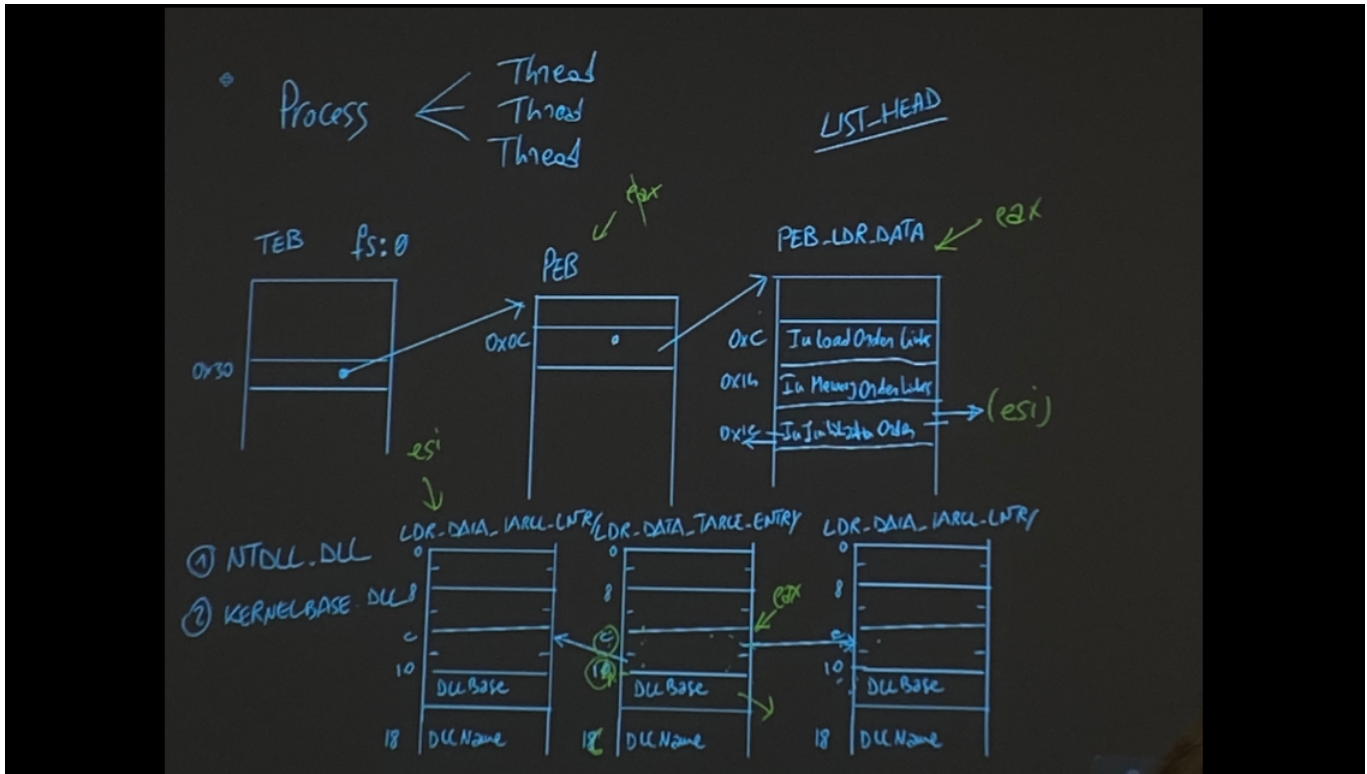 Process
Thread
Thread
Thread
LIST_HEAD
TEB fs:0
0x30
eax
PEB
0x0C
PEB_LDR_DATA
eax
0xC In Load Order Links
0x14 In Memory Order Links
0x1C
(esi)
esi
① NTDLL.DLL
② KERNELBASE.DLL
LDR_DATA_TABLE_ENTRY
0
8
c
10
DLLBase
18 DLLName
LDR_DATA_TABLE_ENTRY
0
8
eax
c
10
DLLBase
DLLName
LDR_DATA_TABLE_ENTRY
0
8
c
10
DLLBase
18 DLLName